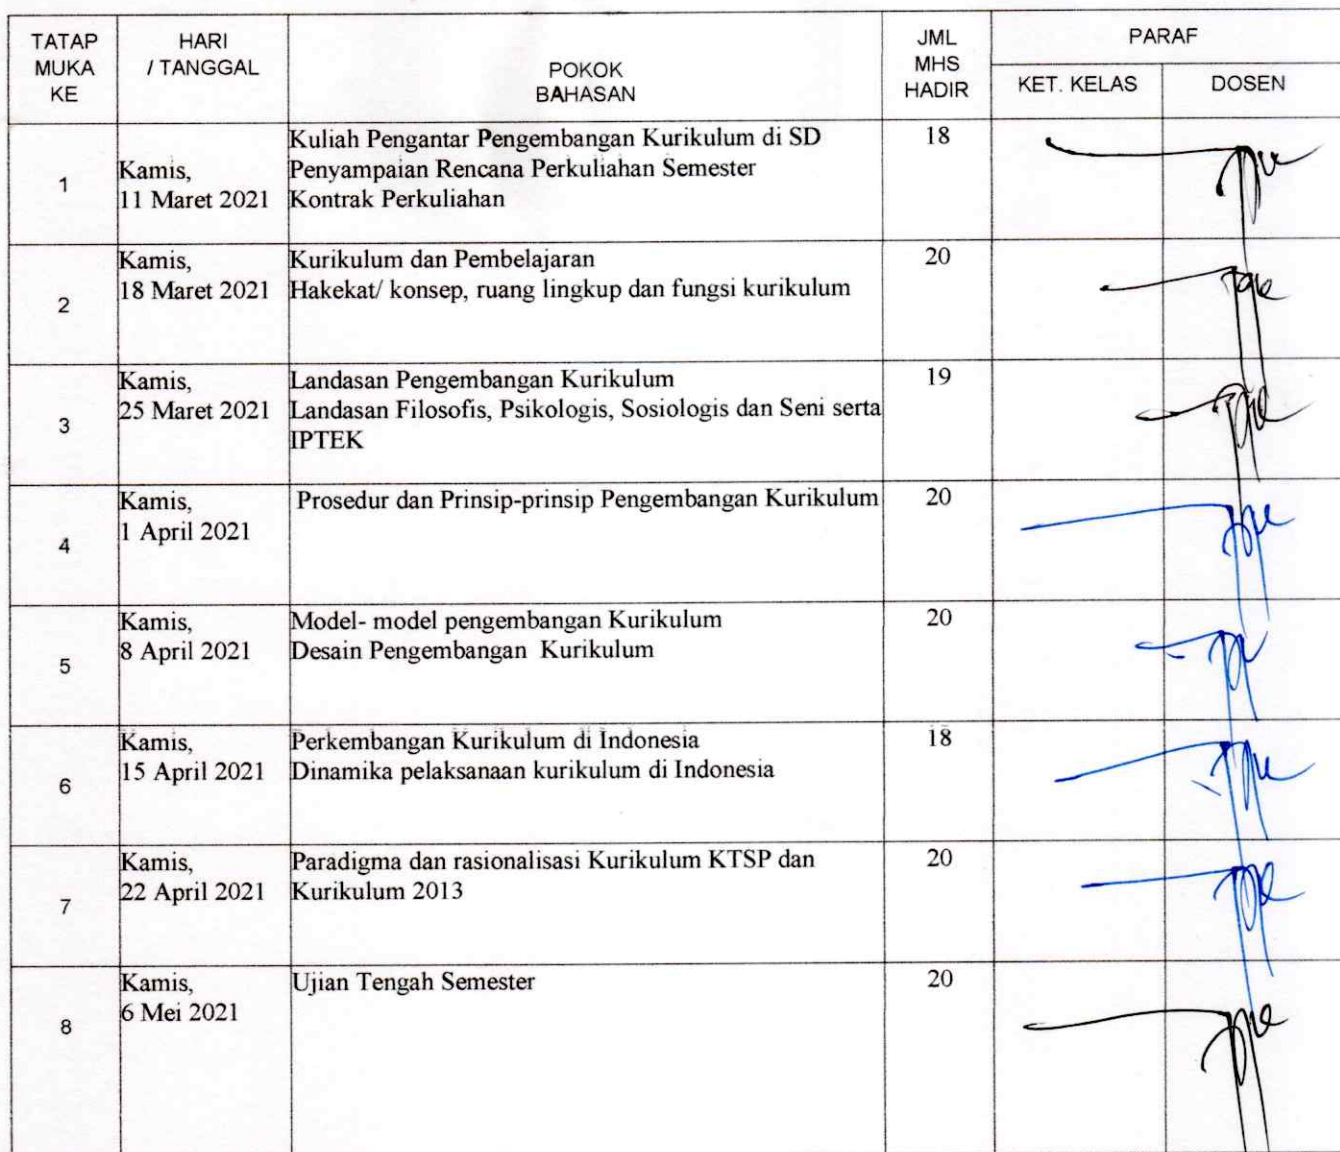 TATAP
MUKA
KE
HARI
/ TANGGAL
POKOK
BAHASAN
JML
MHS
HADIR
PARAF
KET. KELAS
DOSEN
1
Kamis,
11 Maret 2021
Kuliah Pengantar Pengembangan Kurikulum di SD
Penyampaian Rencana Perkuliahan Semester
Kontrak Perkuliahan
18
2
Kamis,
18 Maret 2021
Kurikulum dan Pembelajaran
Hakekat/ konsep, ruang lingkup dan fungsi kurikulum
20
3
Kamis,
25 Maret 2021
Landasan Pengembangan Kurikulum
Landasan Filosofis, Psikologis, Sosiologis dan Seni serta
IPTEK
19
4
Kamis,
1 April 2021
Prosedur dan Prinsip-prinsip Pengembangan Kurikulum
20
5
Kamis,
8 April 2021
Model- model pengembangan Kurikulum
Desain Pengembangan Kurikulum
20
6
Kamis,
15 April 2021
Perkembangan Kurikulum di Indonesia
Dinamika pelaksanaan kurikulum di Indonesia
18
7
Kamis,
22 April 2021
Paradigma dan rasionalisasi Kurikulum KTSP dan
Kurikulum 2013
20
8
Kamis,
6 Mei 2021
Ujian Tengah Semester
20